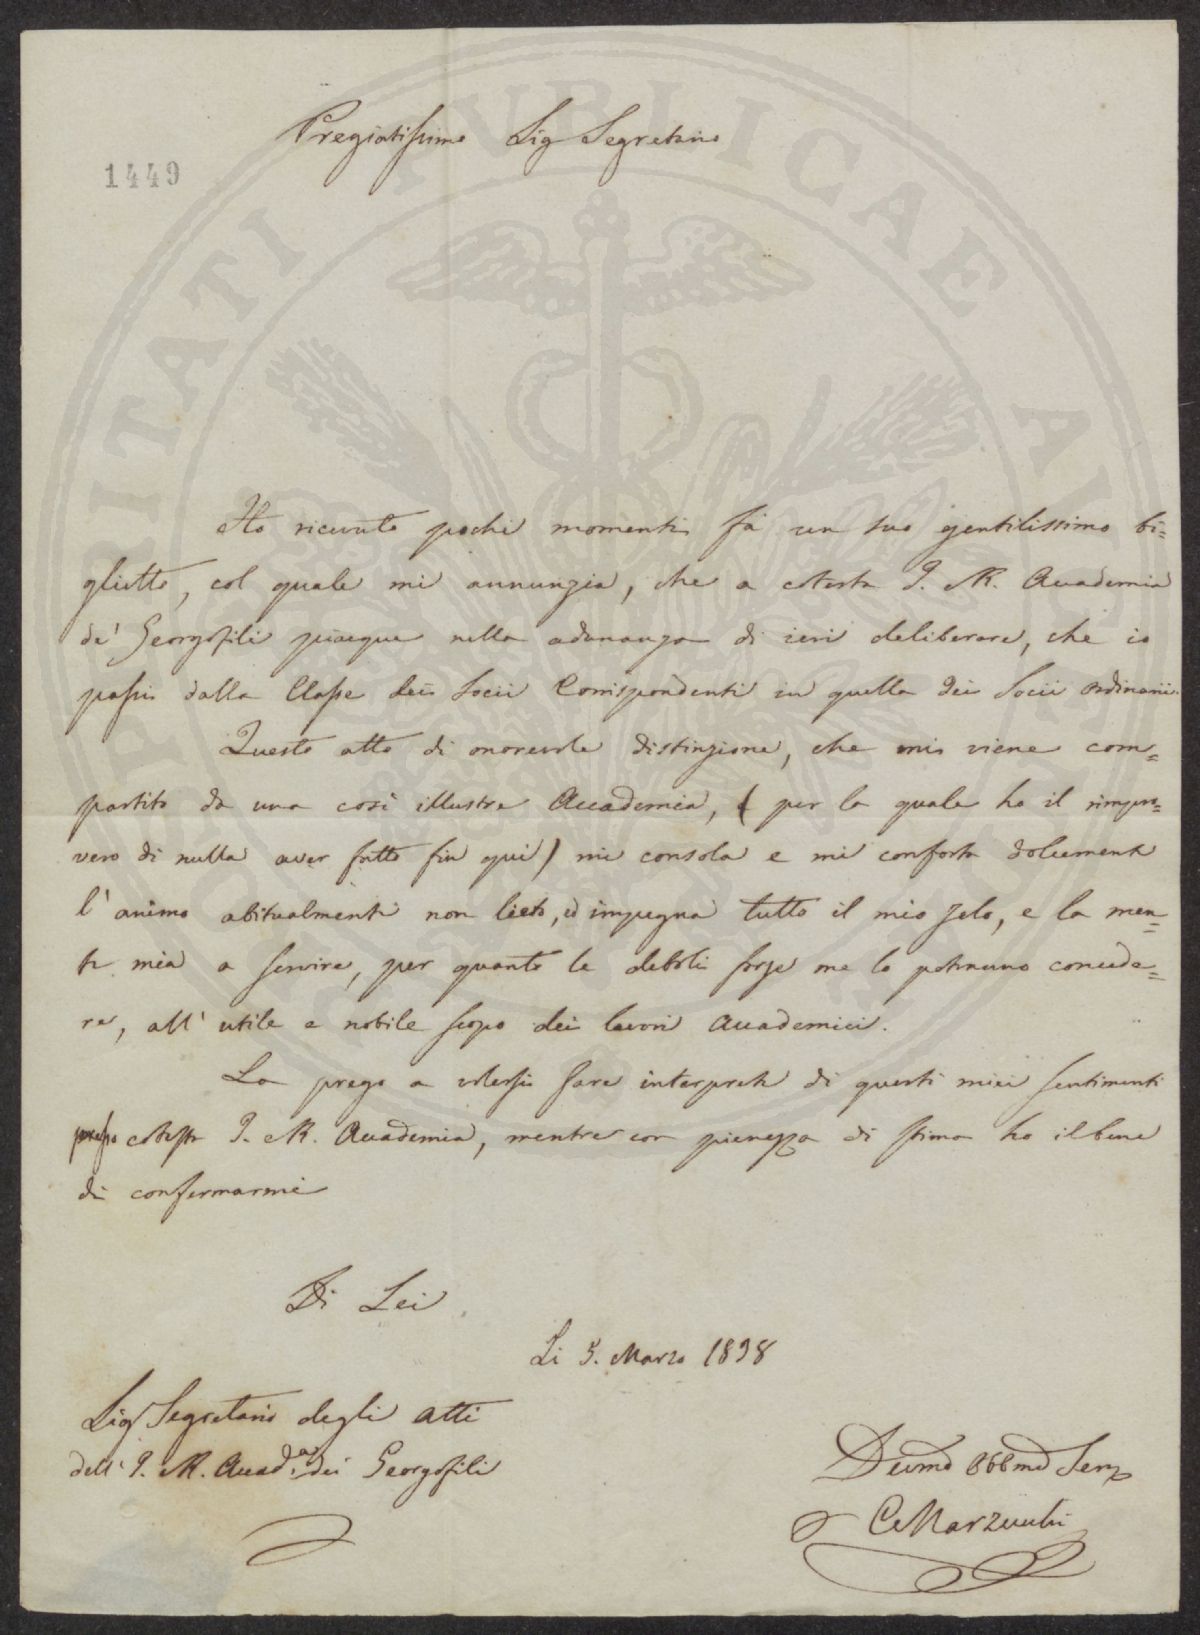 1449
Pregiatissimo Sig Segretario
Ho ricevuto pochi momenti fà un suo gentilissimo bi=
glietto, col quale mi annunzia, che a cotesta I. e R. Accademia
de' Georgofili piacque nella adunanza di ieri deliberare, che io
passi dalla Classe dei Socii Corrispondenti in quella dei Socii ordinarii.
Questo atto di onorevole distinzione, che mi viene com=
partito da una così illustre Accademia, ( per la quale ho il rimpro=
vero di nulla aver fatto fin qui ) mi consola e mi conforta dolcemente
l'animo abitualmente non lieto, ed impegna tutto il mio zelo, e la men=
te mia a servire, per quanto le deboli forze me lo potranno concede=
re, all' utile e nobile scopo dei lavori Accademici.
La prego a volersi fare interprete di questi miei sentimenti
presso cotesta I. e R. Accademia, mentre con pienezza di stima ho il bene
di confermarmi
Di Lei
Li 5. Marzo 1838
Sig Segretario degli Atti
dell' I. e R. Accad.a dei Georgofili
Devmo Obbmo Serv
C Marzucchi
PUBLICAE